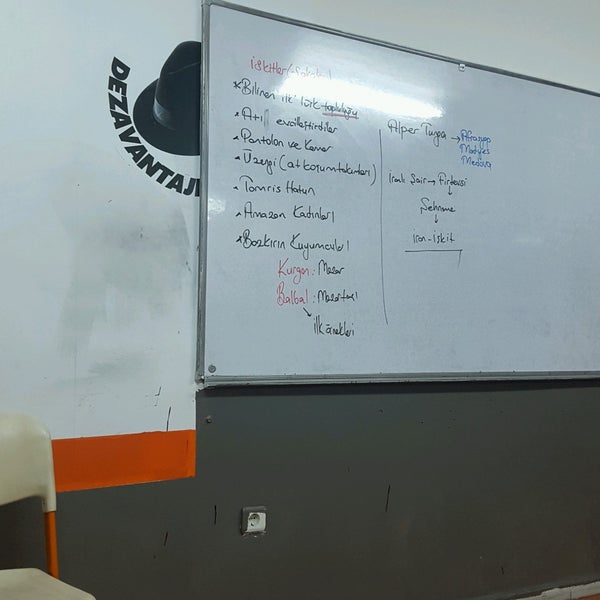 DEZAVANTAJ
İskitler
*Bilinen ilk Türk topluluğu
*Atı evcilleştirdiler
*Pantolon ve Kemer
*Üzengi (at koşum takımları)
*Tomris Hatun
*Amazon Kadınları
*Bozkırın Kuyumcuları
Kurgan: Mezar
Balbal: Mezar taşı
ilk örnekleri
Alper Tunga → Afrasyap
Madyes
İranlı Şair → Firdevsi
Şehname
İran-İskit